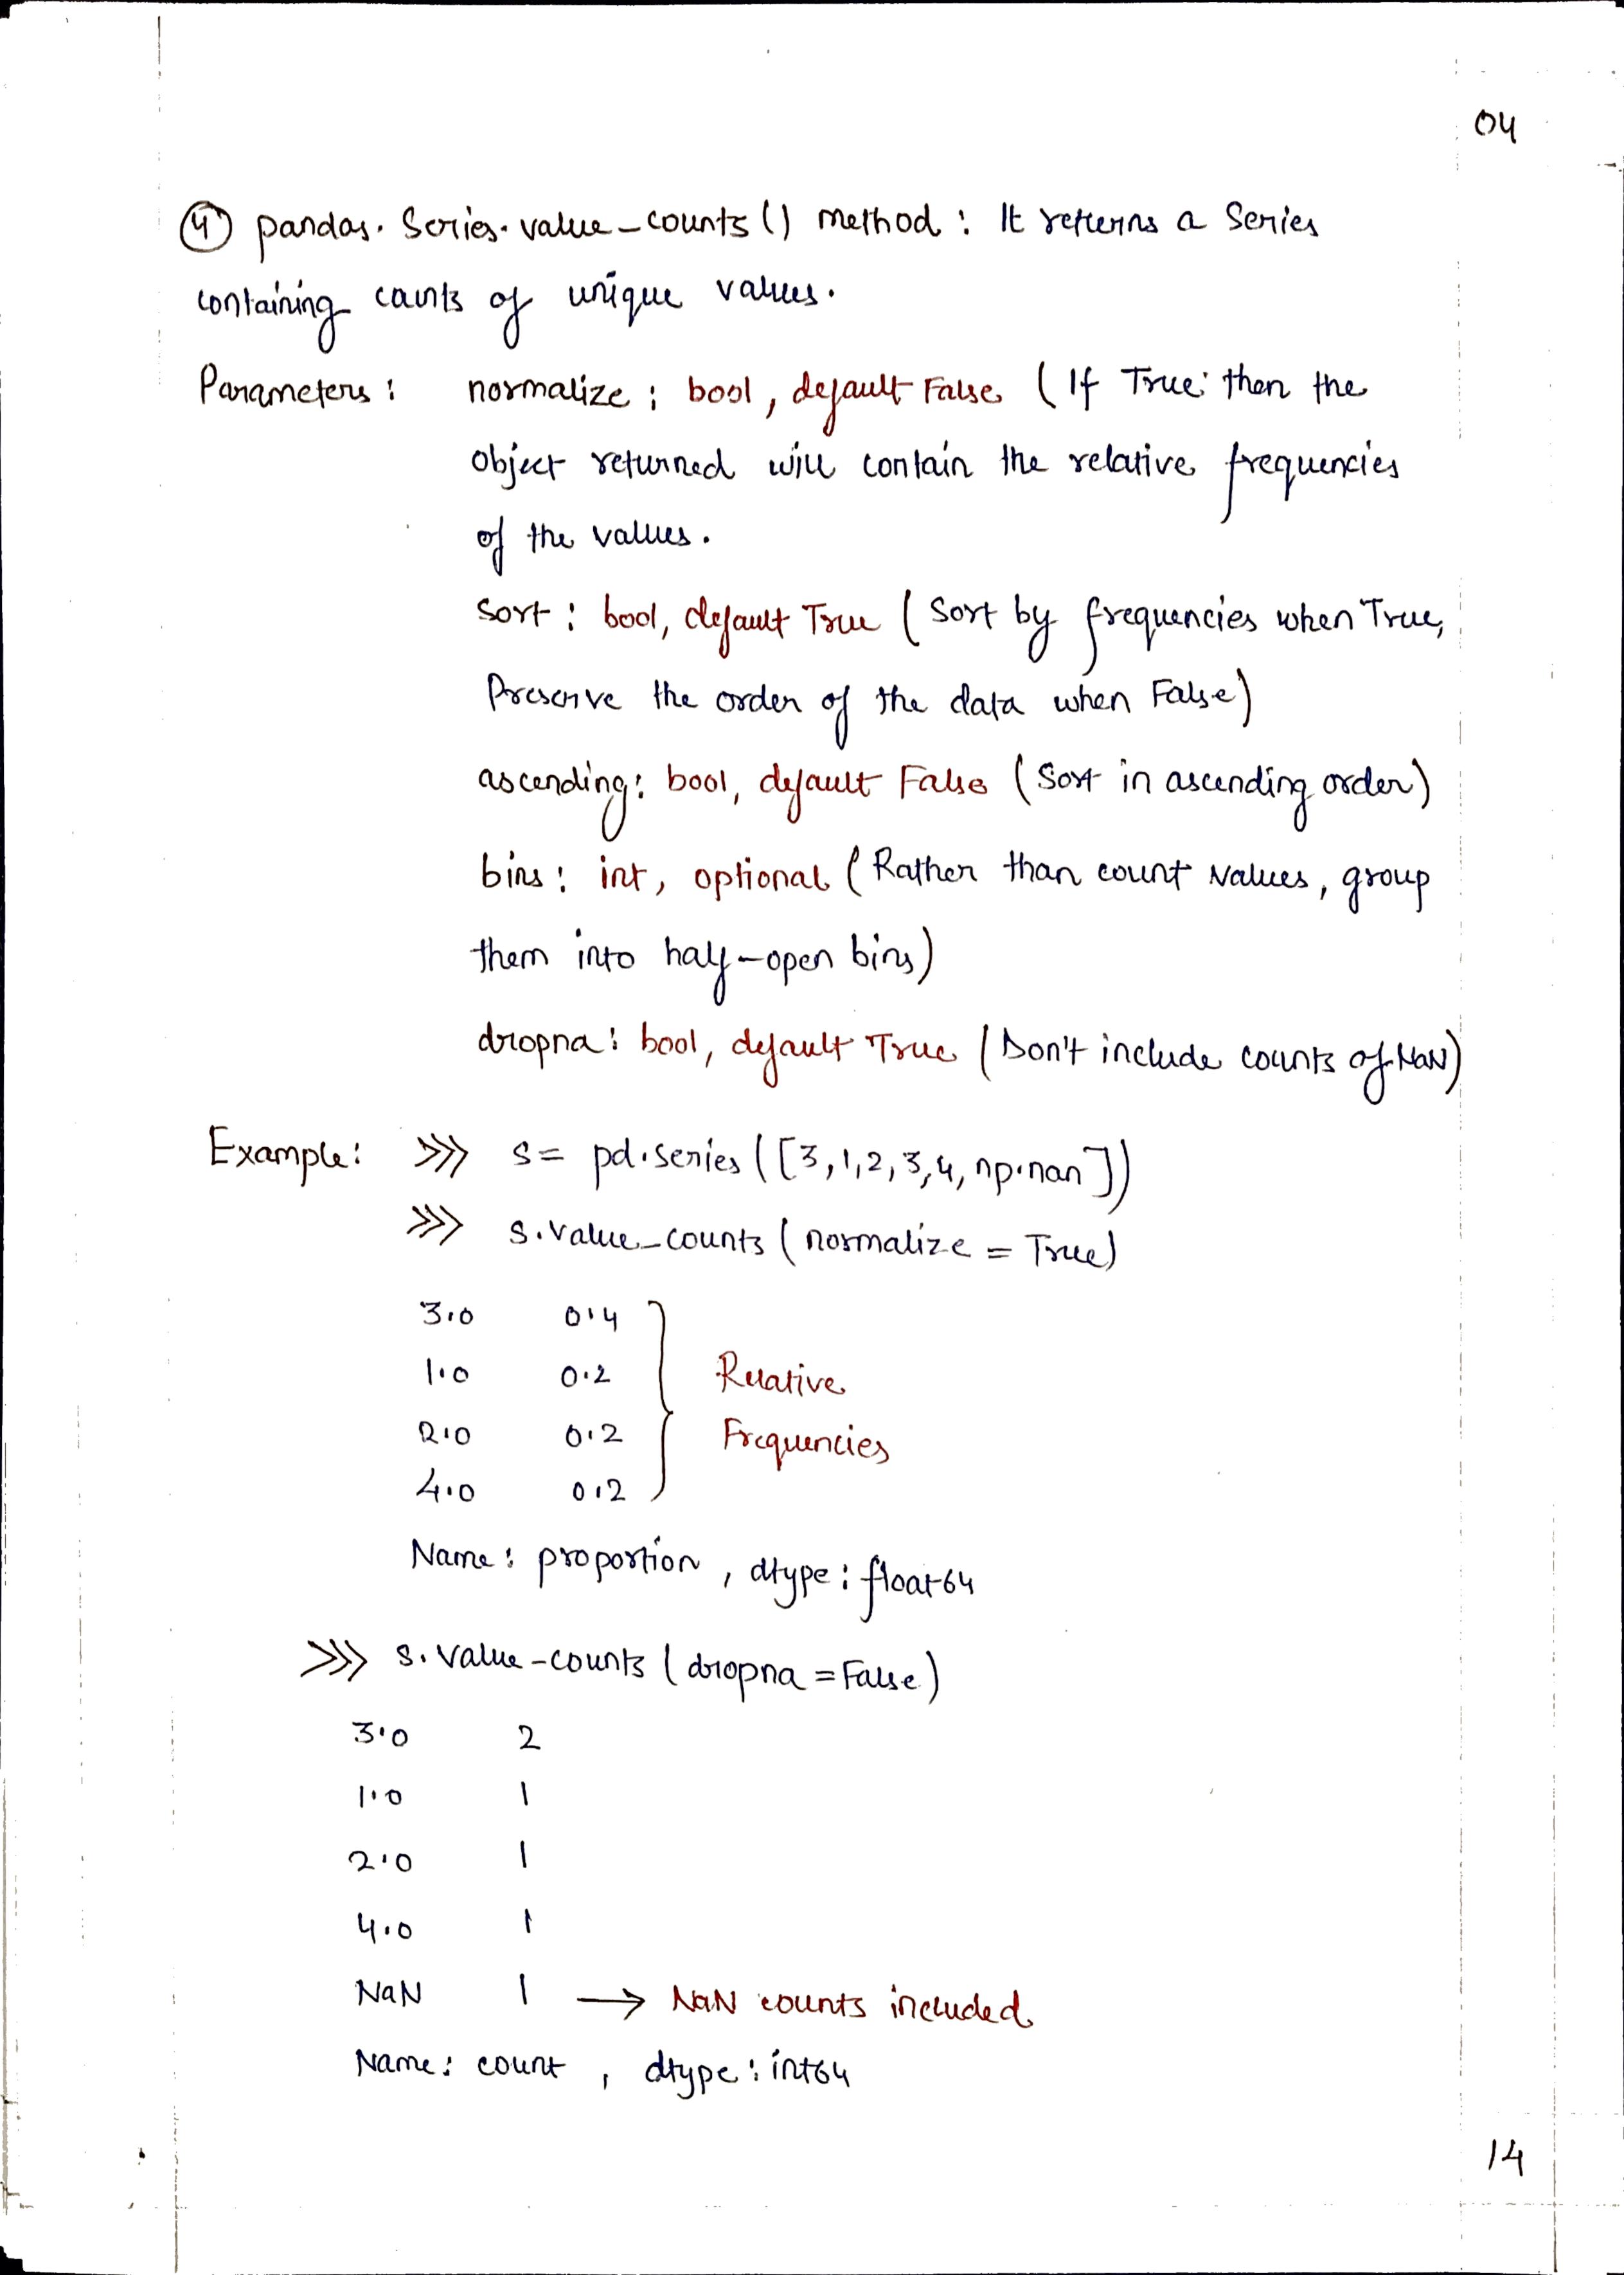 04
④ pandas. Series. value_counts () method : It returns a Series
containing counts of unique values.
Parameters : normalize : bool, default False (If True then the
object returned will contain the relative frequencies
of the values.
Sort : bool, default True (Sort by frequencies when True,
Preserve the order of the data when False)
ascending : bool, default False (Sort in ascending order)
bins : int, optional (Rather than count values, group
them into half-open bins)
dropna : bool, default True (Don't include counts of NaN)
Example : >>> s = pd.series ([3,1,2,3,4, np.nan])
>>> s.value_counts (normalize = True)
3.0 0.4
1.0 0.2 Relative
2.0 0.2 Frequencies
4.0 0.2
Name : proportion , dtype : float64
>>> s. value-counts (dropna = False)
3.0 2
1.0 1
2.0 1
4.0 1
NaN 1 → NaN counts included
Name : count , dtype : int64
14